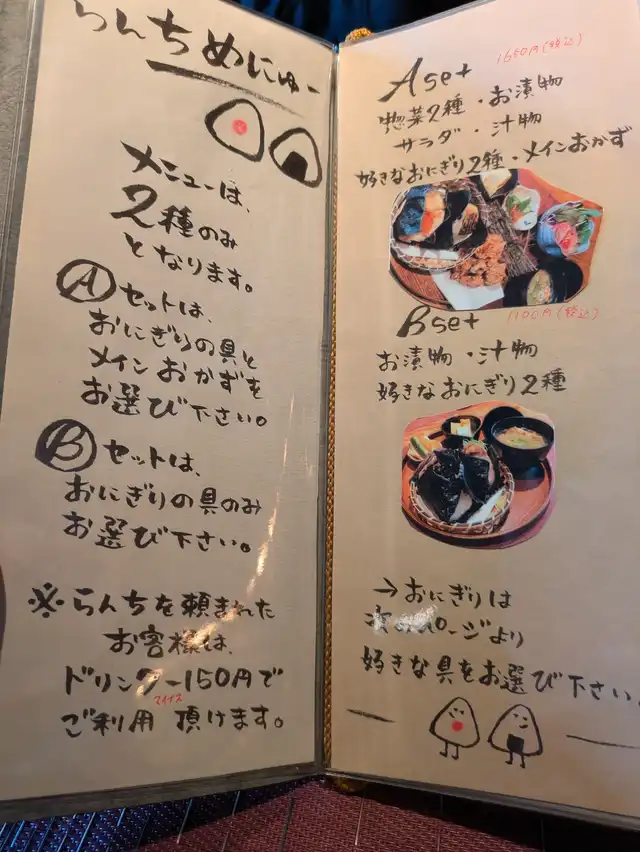 らんちめにゅー
メニューは、
2種のみ
となります。
Ⓐセットは、
おにぎりの具と
メインおかずを
お選び下さい。
Ⓑセットは、
おにぎりの具のみ
お選び下さい。
※らんちを頼まれた
お客様は、
ドリンクー150円で
マイナス
ご利用 頂けます。
Aset 1650円(税込)
惣菜2種・お漬物
サラダ・汁物
好きなおにぎり2種・メインおかず
Bset 1100円(税込)
お漬物・汁物
好きなおにぎり2種
→おにぎりは
次のページより
好きな具をお選び下さい。